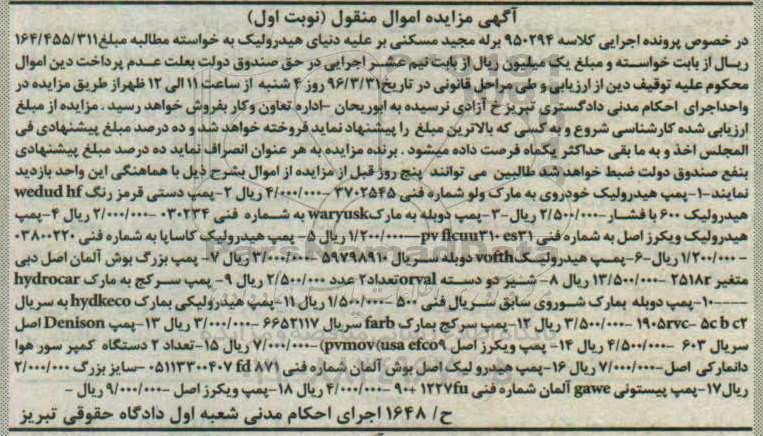 آگهی مزایده اموال منقول (نوبت اول)
در خصوص پرونده اجرایی کلاسه ۹۵۰۲۹۴ برله مجید مسکنی بر علیه دنیای هیدرولیک به خواسته مطالبه مبلغ۱۶۴/۴۵۵/۳۱۱
ریال از بابت خواسته و مبلغ یک میلیون ریال از بابت نیم عشر اجرایی در حق صندوق دولت بعلت عدم پرداخت دین اموال
محکوم علیه توقیف دین از ارزیابی و طی مراحل قانونی در تاریخ۹۶/۳/۳۱ روز ۴ شنبه از ساعت ۱۱ الی ۱۲ ظهراز طریق مزایده در
واحداجرای احکام مدنی دادگستری تبریز خ آزادی نرسیده به ابوریحان –اداره تعاون وکار بفروش خواهد رسید . مزایده از مبلغ
ارزیابی شده کارشناسی شروع و به کسی که بالاترین مبلغ را پیشنهاد نماید فروخته خواهد شد و ده درصد مبلغ پیشنهادی فی
المجلس اخذ و به ما بقی حداکثر یکماه فرصت داده میشود . برنده مزایده به هر عنوان انصراف نماید ده درصد مبلغ پیشنهادی
بنفع صندوق دولت ضبط خواهد شد طالبین می توانند پنج روز قبل از مزایده از اموال بشرح ذیل با هماهنگی این واحد بازدید
نمایند-۱–پمپ هیدرولیک خودروی به مارک ولو شماره فنی ۳۷۰۲۵۴۵ –۴/۰۰۰/۰۰۰ ریال ۲–پمپ دستی قرمز رنگ wedud hf
هیدرولیک ۶۰۰ با فشار–۲/۵۰۰/۰۰۰ ریال–۳–پمپ دوبله به مارکwaryusk به شماره فنی ۰۳۰۲۳۴ –۲/۰۰۰/۰۰۰ ریال ۴–پمپ
هیدرولیک ویکرز اصل به شماره فنی pv flcuu۳۱۰ es۳۱—۱/۲۰۰/۰۰۰ ریال ۵–پمپ هیدرولیک کاساپا به شماره فنی ۰۳۸۰۰۲۲۰
–۱/۲۰۰/۰۰۰ ریال–۶–پمپ هیدرولیک vofth دوبله سریال ۵۹۷۹۸۹۱۰ –۳/۰۰۰/۰۰۰ ریال ۷– پمپ بزرگ بوش آلمان اصل دبی
متغیر ۲۵۱۸r –۱۳/۵۰۰/۰۰۰ ریال ۸– شیر دو دسته orvalتعداد۲ عدد ۲/۵۰۰/۰۰۰ ریال ۹– پمپ سرکج به مارک hydrocar
––––۱۰–پمپ دوبله بمارک شوروی سابق سریال فنی ۵۰۰ –۱/۵۰۰/۰۰۰ ریال ۱۱–پمپ هیدرولیکی بمارک hydkeco به سریال
۱۹۰۵rvc– ۵c b c۲ –۳/۵۰۰/۰۰۰ ریال ۱۲–پمپ سرکج بمارک farb سریال ۶۶۵۲۱۱۷ –۳/۰۰۰/۰۰۰ ریال ۱۳–پمپ Denison اصل
سریال ۶۰۳ –۴/۵۰۰/۰۰۰ ریال ۱۴– پمپ ویکرز اصل pvmov(usa efco۹)–۷/۰۰۰/۰۰۰ ریال ۱۵–تعداد ۲ دستگاه کمپر سور هوا
دانمارکی اصل –۷/۰۰۰/۰۰۰ ریال ۱۶–پمپ هیدرو لیک اصل بوش آلمان شماره فنی ۰۵۱۱۳۳۰۰۴۰۷ fd ۸۷۱ –سایز بزرگ ۲/۰۰۰/۰۰۰
ریال۱۷–پمپ پیستونی gawe آلمان شماره فنی ۹۰+ ۱۲۲۷fu –۴/۰۰۰/۰۰۰ ریال ۱۸–پمپ ویکرز اصل –۹/۰۰۰/۰۰۰ ریال –
ح/ ۱۶۴۸ اجرای احکام مدنی شعبه اول دادگاه حقوقی تبریز